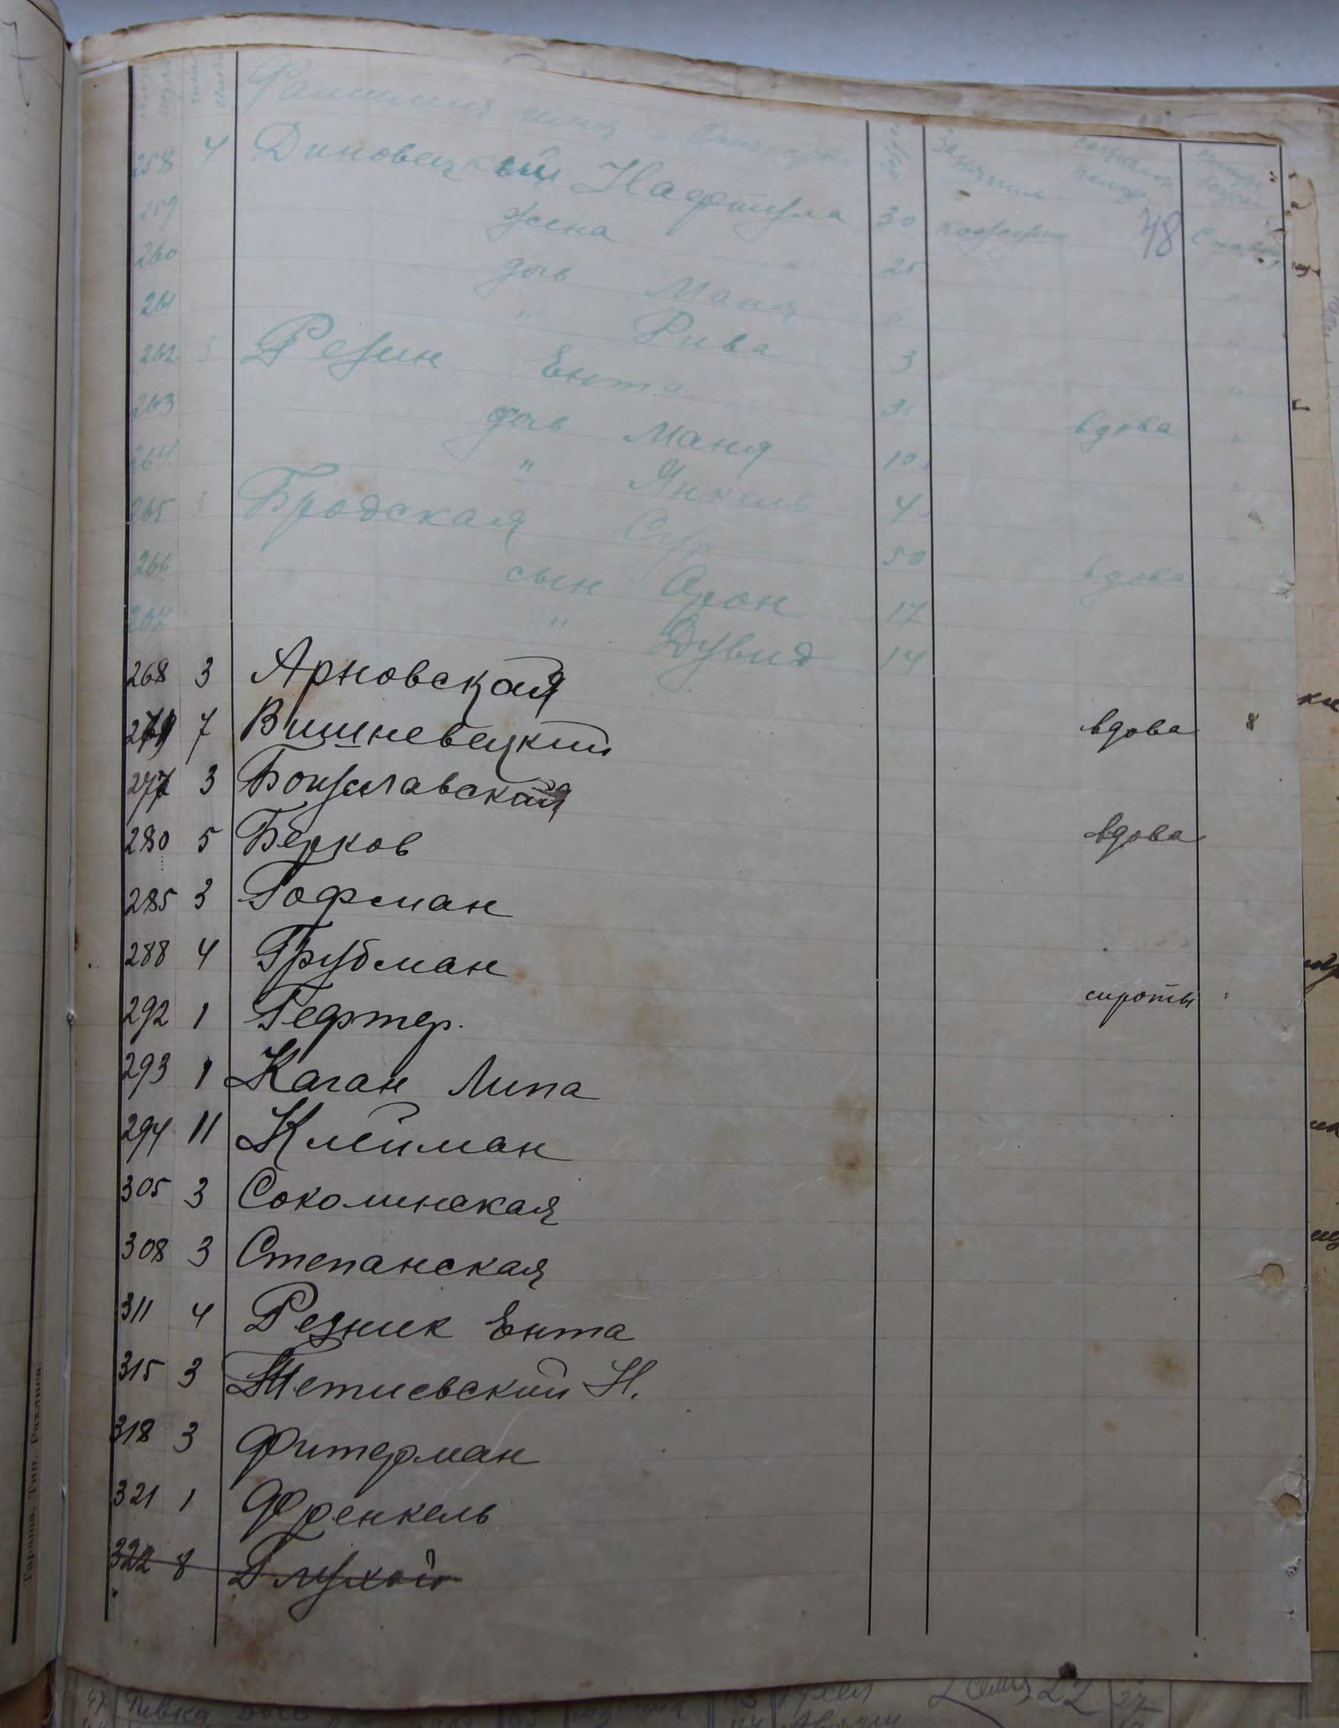 Фамилия имя и Отчество
258 4 Диновецкий Нафтула 30 48
259 жена 25
260 дочь Маня 6
261 " Рива 3
262 3 Резин Ента 31 вдова
263 дочь Маня 10
264 " Янкель 4
265 3 Бродская Сур 50 вдова
266 сын Арон 17
267 " Дувид 14
268 3 Арновская вдова
7 Вишневецкий
277 3 Богуславская вдова
280 5 Берков
285 3 Гофман
288 4 Грубман сироты
292 1 Гефтер.
293 1 Каган Липа
294 11 Клейман
305 3 Соколинская
308 3 Степанская
311 4 Резник Ента
315 3 Тетиевский Н.
318 3 Фитерман
321 1 Френкель
322 8 Глухой
Тараща, Тип. Рахлиса